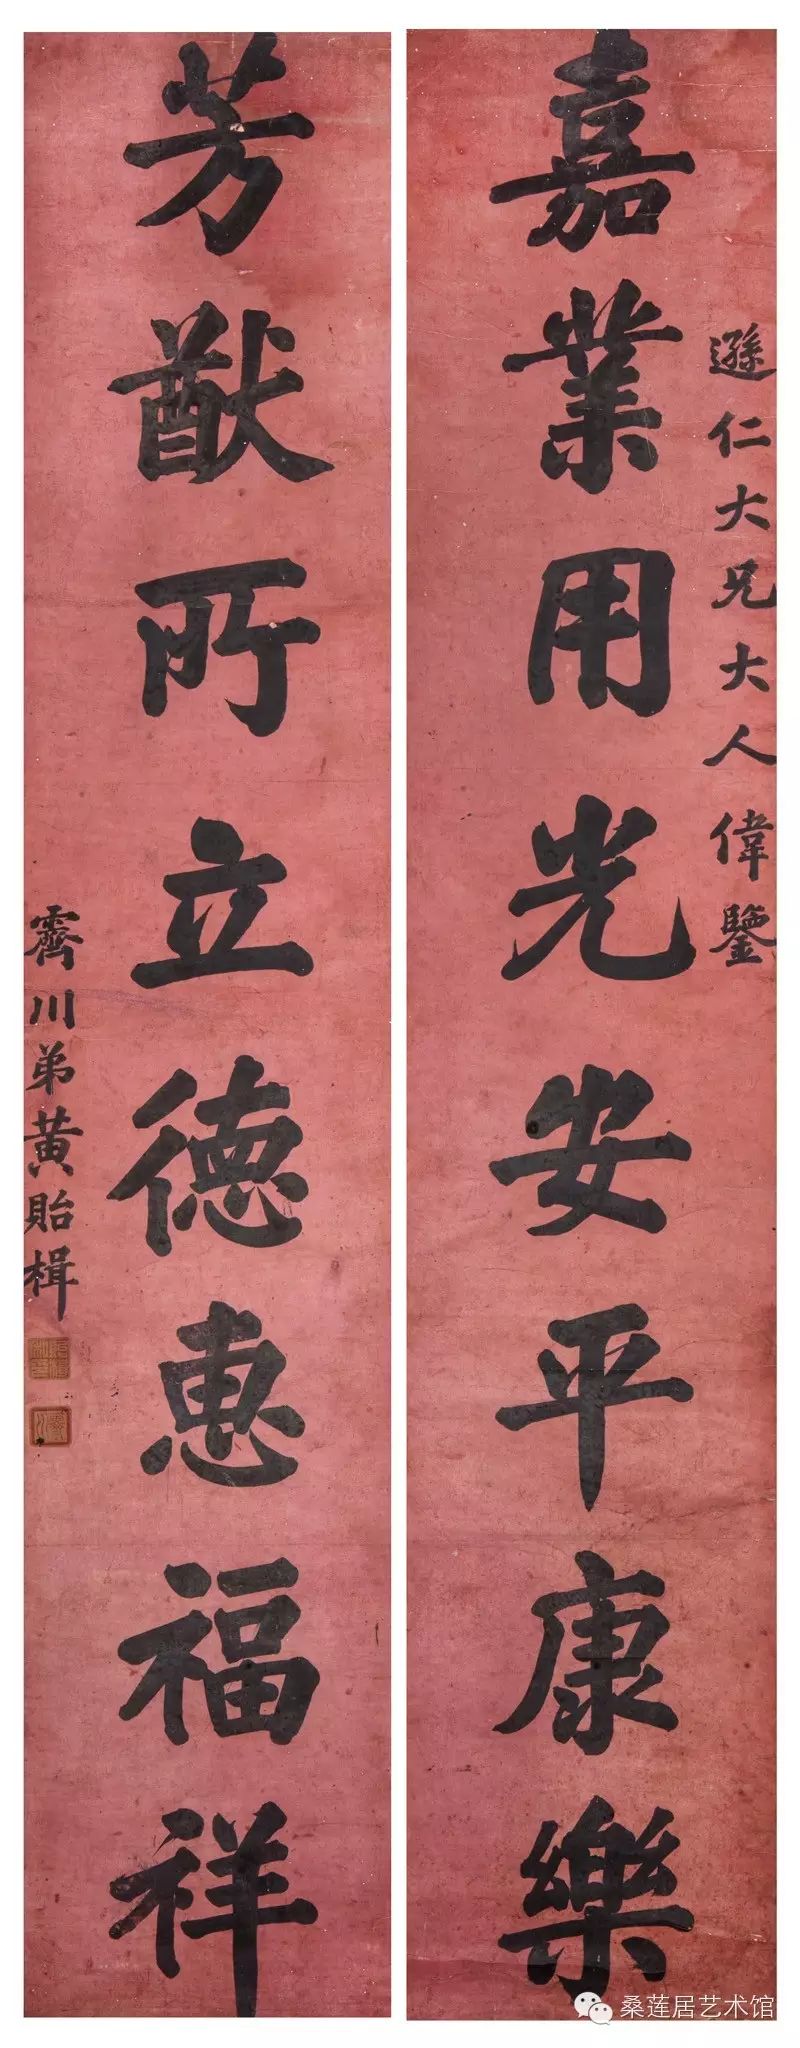 遜仁大兄大人偉鑒
嘉業用光安平康樂
芳猷所立德惠福祥
霽川弟黃貽楫
桑莲居艺术馆